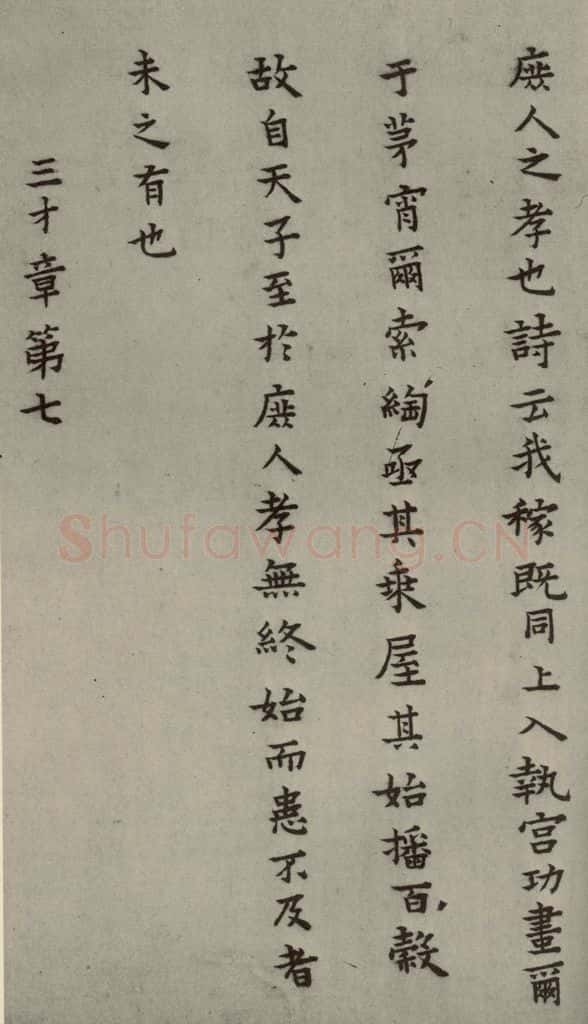 庶人之孝也詩云我稼既同上入執宫功晝爾
于茅宵爾索綯亟其乗屋其始播百穀
故自天子至於庶人孝無終始而患不及者
未之有也
三才章第七
Shufawang.CN